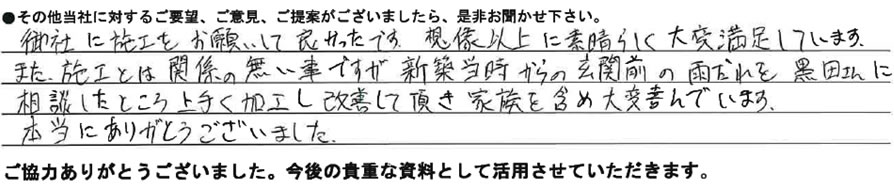 ●その他当社に対するご要望、ご意見、ご提案がございましたら、是非お聞かせ下さい。
御社に施工をお願いして良かったです。想像以上に素晴らしく大変満足しています。
また、施工とは関係の無い事ですが新築当時からの玄関前の雨だれを黒田さんに
相談したところ上手く加工し改善して頂き家族を含め大変喜んでいます。
本当にありがとうございました。
ご協力ありがとうございました。今後の貴重な資料として活用させていただきます。